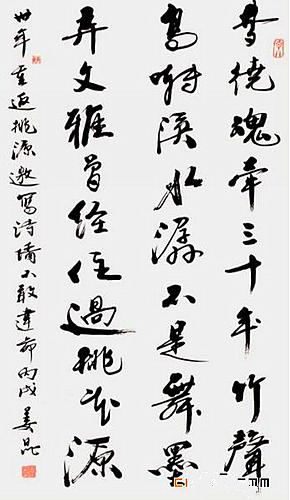 梦绕魂牵三十年竹聲
鸟啭溪水潺不是舞墨
弄文雅曾经住過桃花源
卅年重返桃源邀写诗墙不敢違命丙戌姜昆